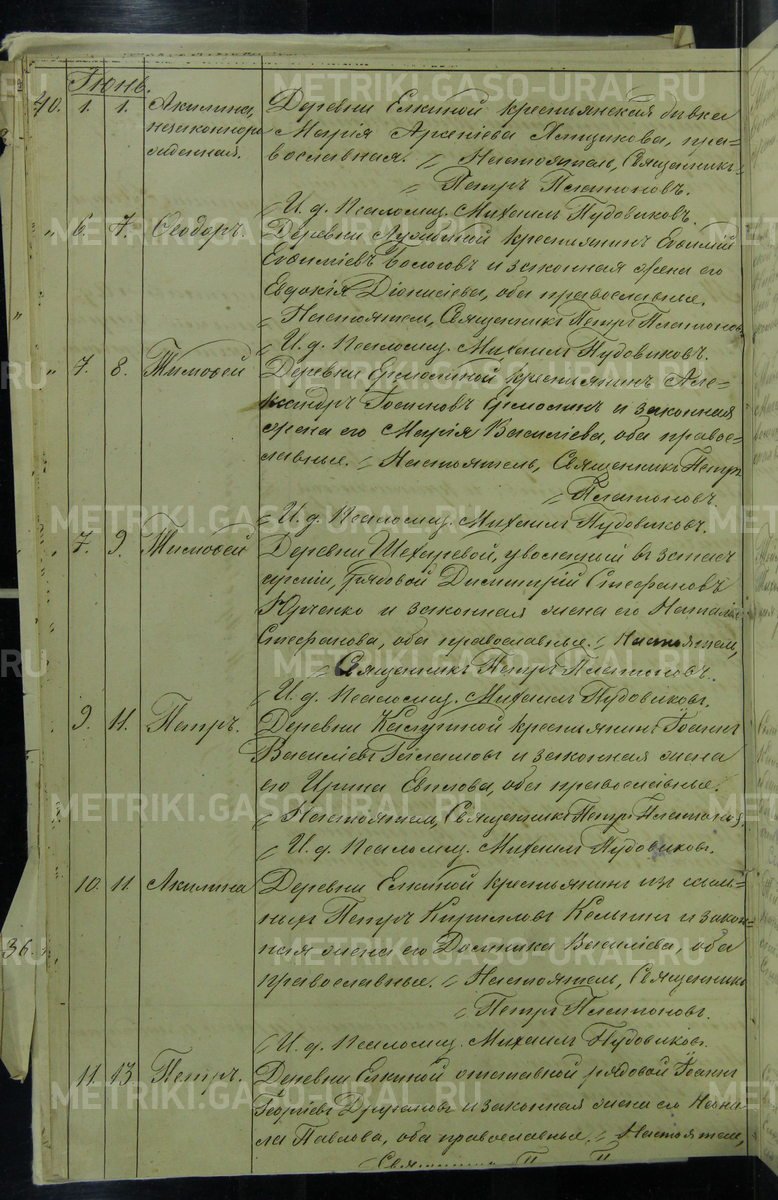 Июнь.
40. 1. 1. Акилина, Деревни Елкиной крестьянская дѣвка
незаконноро Марія Арсеніева Птицикова, пра-
жденная. вославная. Настоятель, Священникъ
Петръ Платоновъ.
И. д. Псаломщ. Михаилъ Пудовиковъ.
6. 7. Ѳеодоръ. Деревни крестьянинъ Евѳимій
Евѳиміевъ и законная жена его
Евдокія Діонисіева, оба православные.
Настоятель, Священникъ Петръ Платоновъ
И. д. Псаломщ. Михаилъ Пудовиковъ.
7. 8. Тимоѳей Деревни Ермолиной крестьянинъ Але-
ксандръ Іосифовъ Ермолинъ и законная
жена его Марія Василіева, оба право-
славные. Настоятель, Священникъ Петръ
Платоновъ.
И. д. Псаломщ. Михаилъ Пудовиковъ.
7. 9. Тимоѳей Деревни уволенный въ запасъ
арміи, рядовой Димитрій Стефановъ
Юрченко и законная жена его Наталія
Стефанова, оба православные. Настоятель,
Священникъ Петръ Платоновъ.
И. д. Псаломщ. Михаилъ Пудовиковъ.
9. 11. Петръ. Деревни крестьянинъ Іоаннъ
Василіевъ и законная жена
его Ирина оба православные.
Настоятель, Священникъ Петръ Платоновъ.
И. д. Псаломщ. Михаилъ Пудовиковъ.
10. 11 Акилина Деревни Елкиной крестьянинъ изъ ссыль-
ныхъ Петръ Кирилловъ и закон-
ная жена его Домника Василіева, оба
православные. Настоятель, Священникъ
Петръ Платоновъ.
И. д. Псаломщ. Михаилъ Пудовиковъ.
36.
11. 13. Петръ. Деревни Елкиной отставной рядовой Іоаннъ
Георгіевъ и законная жена его Неони-
ла Павлова, оба православные. Настоятель,
METRIKI.GASO-URAL.RU